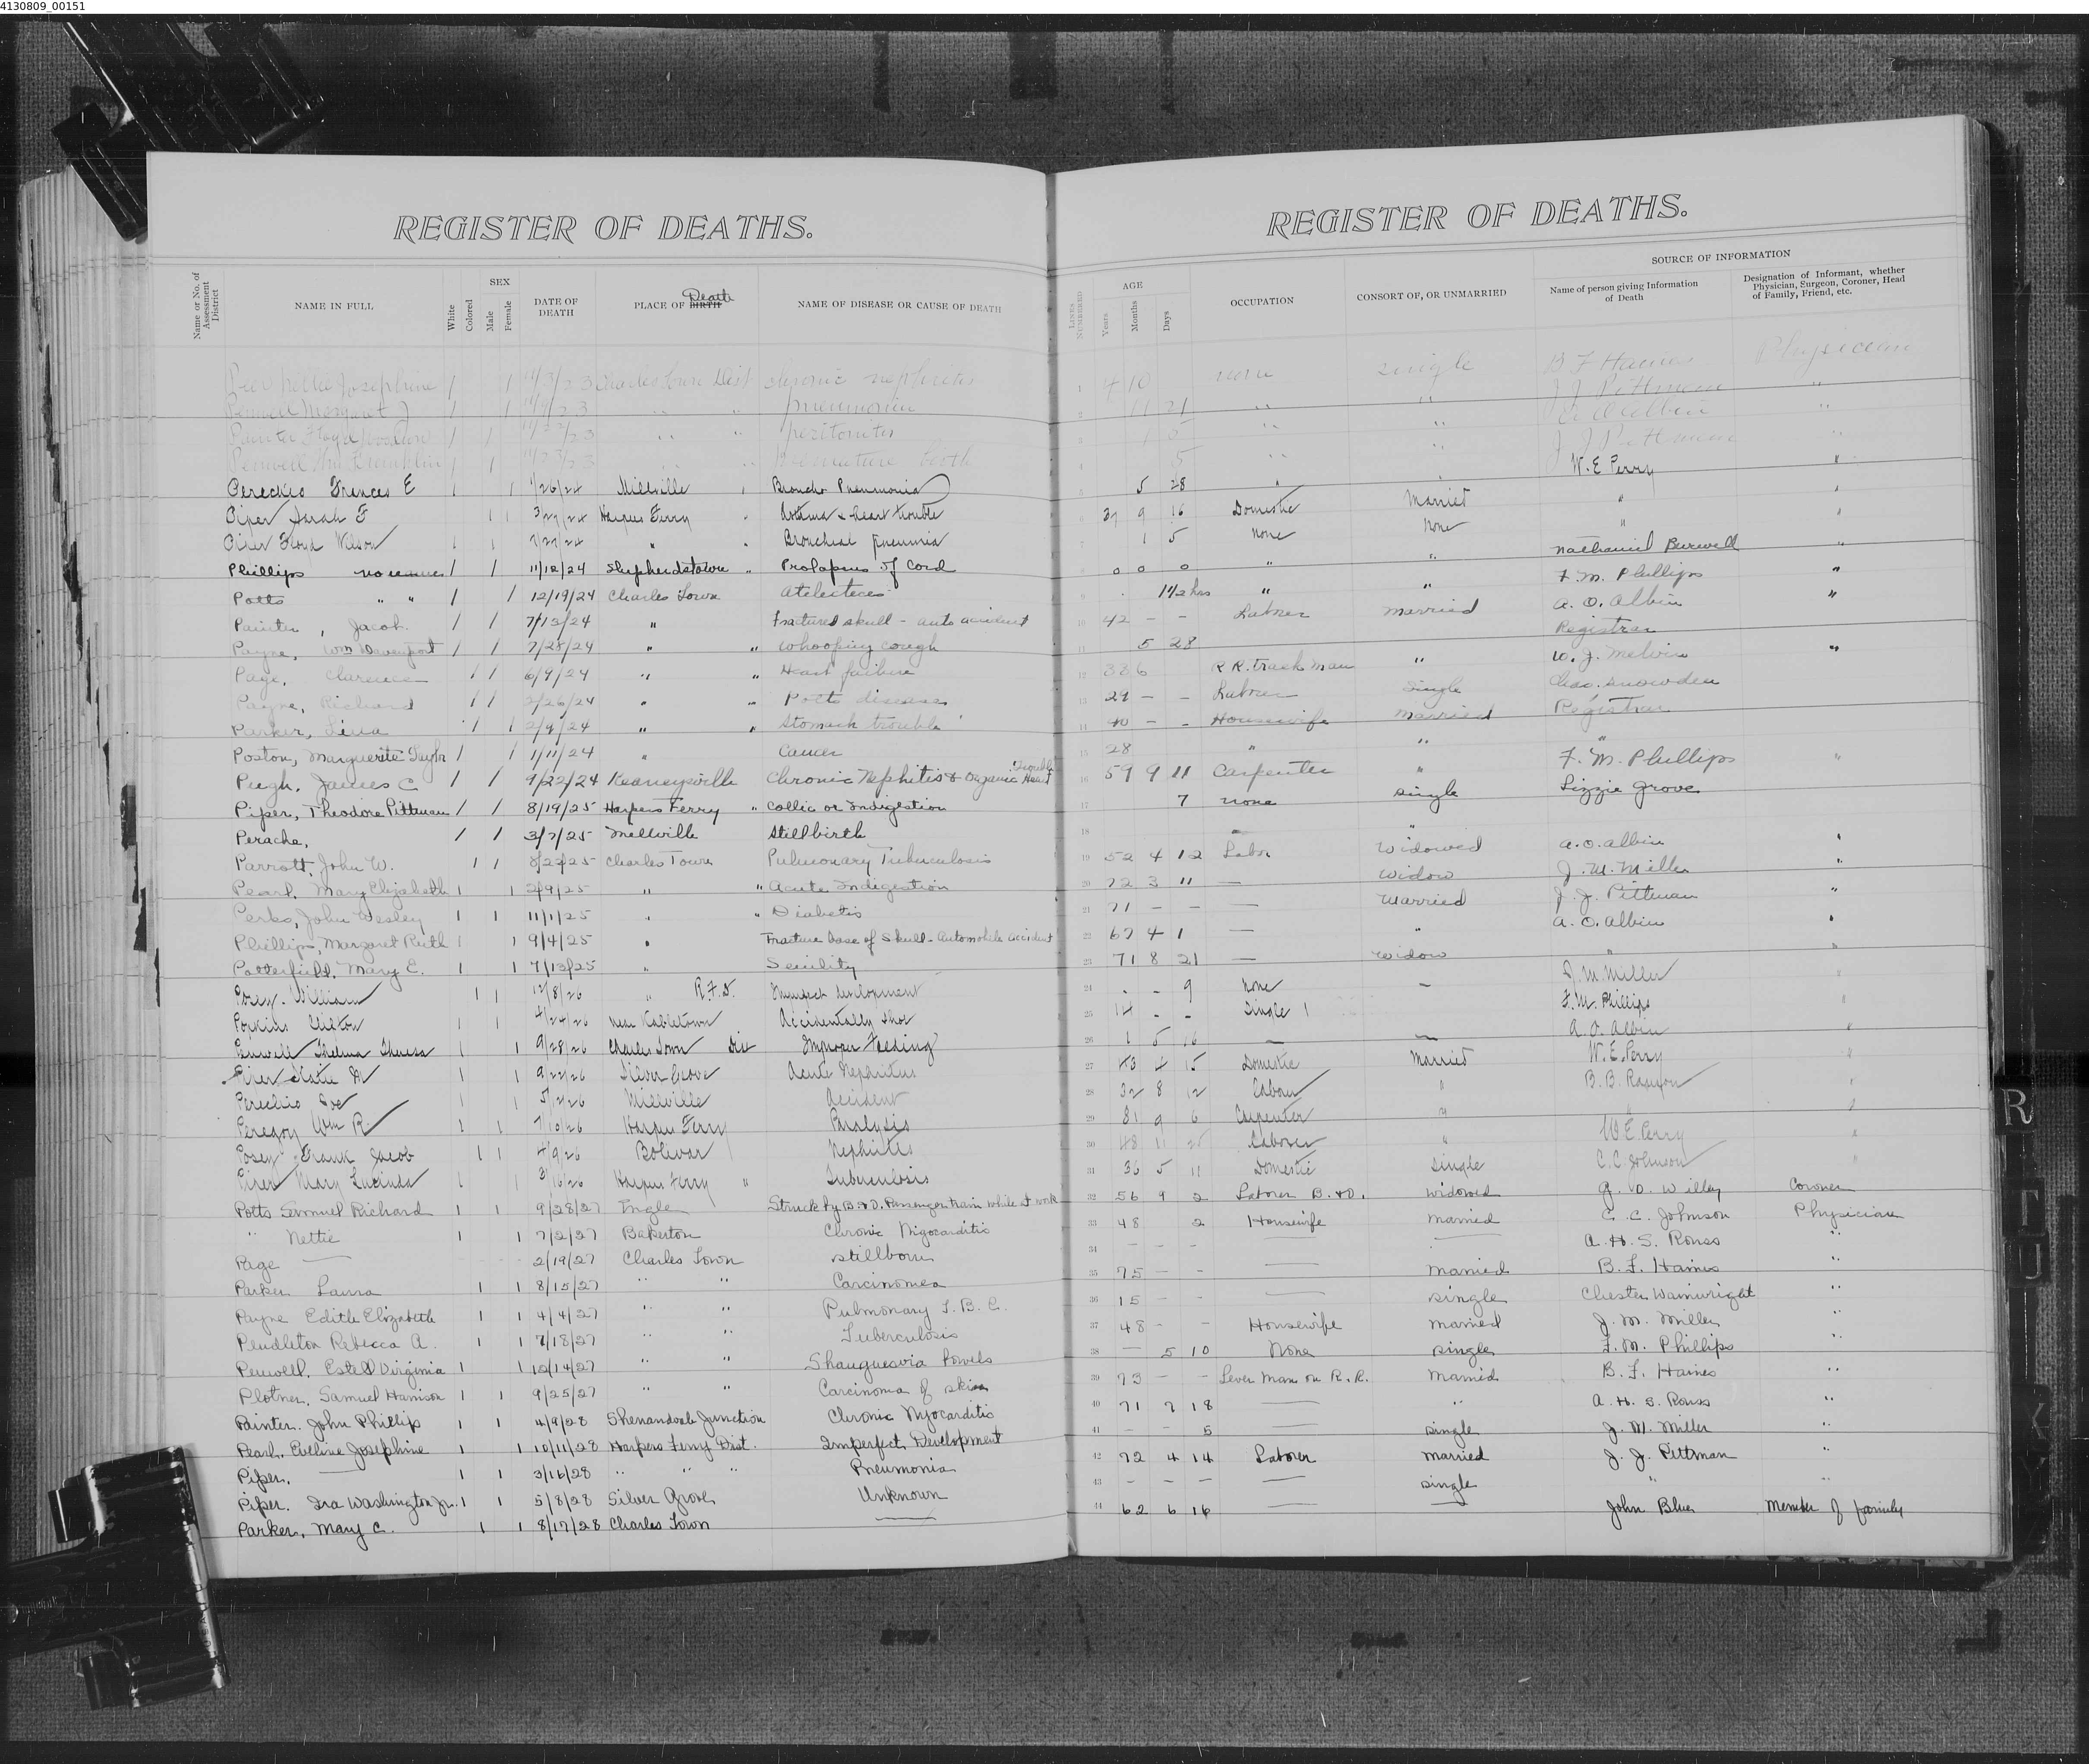 4130809_00151
REGISTER OF DEATHS.
Name or No. of Assessment District
NAME IN FULL
White
Colored
SEX
Male
Female
DATE OF DEATH
PLACE OF BIRTH Death
NAME OF DISEASE OR CAUSE OF DEATH
Josephine 1 1 11/3/23 Charles Town Dist chronic nephritis
Penwell Margaret J 1 1 " " pneumonia
Painter Floyd 1 1 " " peritonitis
Penwell Franklin 1 1 11/23/23 " " Premature birth
Perechio Frances E 1 1 1/26/24 Millville " Broncho Pneumonia
Piper Sarah F 1 1 3/27/24 Harpers Ferry " Asthma & heart trouble
Floyd Wilson 1 1 7/27/24 " " Bronchial pneumnia
Phillips no name 1 1 11/12/24 Shepherdstown " Prolapsus of Cord
Potts " " 1 1 12/19/24 Charles Town Atelecteces
Painter, Jacob 1 1 7/13/24 " Fractured skull - auto accident
Payne, Wm Davenport 1 1 7/28/24 " " Whooping cough
Page, Clarence 1 1 6/9/24 " " Heart failure
Payne, Richard 1 1 2/26/24 " " Potts disease
Parker, Lina 1 1 2/9/24 " " Stomach trouble
Poston, Marguerite Taylor 1 1 1/11/24 " Cancer
Pugh, James C 1 1 9/22/24 Kearneysville Chronic Nephitis & Organic Heart Trouble
Piper, Theodore Pittman 1 1 8/19/25 Harpers Ferry " Collic or Indigestion
Perache, 1 1 3/7/25 Millville Stillbirth
Parrott, John W. 1 1 8/22/25 Charles Town Pulmonary Tuberculosis
Pearl, Mary Elizabeth 1 1 2/9/25 " " Acute Indigestion
Perks, John Wesley 1 1 11/1/25 " " Diabetis
Phillips, Margaret Ruth 1 1 9/4/25 " Fracture base of Skull - Automobile accident
Potterfield, Mary E. 1 1 7/13/25 " Senility
Posey. William 1 1 12/8/26 " R.F.D. development
Popkins Clifton 1 1 4/24/26 near Kabletown Accidentally Shot
Penwell Thelma Theresa 1 1 9/28/26 Charles Town Dist Improper Feeding
Katie M 1 1 9/22/26 Silver Grove Acute Nephritus
Perechio Joe 1 1 Millville Accident
Peregoy Wm R. 1 1 7/10/26 Harpers Ferry Paralysis
Posey Frank Jacob 1 1 4/9/26 Bolivar Nephritis
Mary Lucinda 1 1 3/16/26 Harpers Ferry " Tuberculosis
Potts Samuel Richard 1 1 9/28/27 Engle Struck by B. & O. Passenger train while at work
" Nettie 1 1 7/2/27 Bakerton Chronic Myocarditis
Page — 2/19/27 Charles Town stillborn
Parker Laura 1 1 8/15/27 " " Carcinomea
Payne Edith Elizabeth 1 1 4/4/27 " " Pulmonary T. B. C.
Pendleton Rebecca A. 1 1 7/18/27 " " Tuberculosis
Penwell, Estell Virginia 1 1 12/14/27 " " bowels
Plotner, Samuel Harrison 1 1 9/25/27 " " Carcinoma of skin
Painter. John Phillip 1 1 4/9/28 Shenandoah Junction Chronic Myocarditis
Pearl, Eveline Josephine 1 1 10/11/28 Harpers Ferry Dist. Imperfect Development
Piper, — 1 1 3/16/28 " " " Pneumonia
Piper. Ira Washington Jr. 1 1 5/8/28 Silver Grove Unknown
Parker, Mary C. 1 1 8/17/28 Charles Town —
REGISTER OF DEATHS.
LINES NUMBERED
AGE
Years
Months
Days
OCCUPATION
CONSORT OF, OR UNMARRIED
SOURCE OF INFORMATION
Name of person giving Information of Death
Designation of Informant, whether Physician, Surgeon, Coroner, Head of Family, Friend, etc.
1 4 10 none single B F Haines Physician
2 11 21 " " J J Pittman "
3 1 " " A O Albin "
4 5 " " J J Pittman "
5 5 28 " " W. E Perry "
6 37 9 16 Domestic Married " "
7 1 5 None None " "
8 0 0 0 " " Nathaniel Burwell "
9 1 1/2 hrs " " F. M. Phillips "
10 42 - - Laborer married A. O. Albin "
11 5 28 Registrar
12 386 R R. track man " W. J. Melvin "
13 29 - - Laborer Single Chas. Snowden
14 40 - - Housewife married Registrar
15 28 " " "
16 59 9 11 Carpenter " F. M. Phillips "
17 7 none single Lizzie Grove
18 "
19 52 4 12 Labor Widowed A. O. Albin "
20 72 3 11 — Widow J. M. Miller "
21 71 - - — Married J. J. Pittman "
22 67 4 1 — " A. O. Albin "
23 71 8 21 — Widow " "
24 - - 9 None — J. M. Miller "
25 14 - - Single F. M. Phillips "
26 1 5 16 — — A. O. Albin "
27 43 4 15 Domestic Married W. E. Perry "
28 32 8 12 Labour " B. B. Ranson "
29 81 9 6 Carpenter " " "
30 48 11 25 Laborer " W E. Perry "
31 36 5 11 Domestic Single C. C. Johnson "
32 56 9 2 Laborer B. & O. Widowed G. D. Willey Coroner
33 48 2 Housewife married C. C. Johnson Physician
34 - - - — — A. H. S. Rouss "
35 75 - - — married B. F. Haines "
36 15 - - — single Chester Wainwright "
37 48 - - Housewife married J. M. Miller "
38 — 5 10 None single F. M. Phillips "
39 73 - - Lever Man on R. R. Married B. F. Haines "
40 71 7 18 — " A. H. S. Rouss "
41 - - 5 — single J. M. Miller "
42 72 4 14 Laborer married J. J. Pittman "
43 - - - — single " "
44 62 6 16 — — John Blue Member of family
R